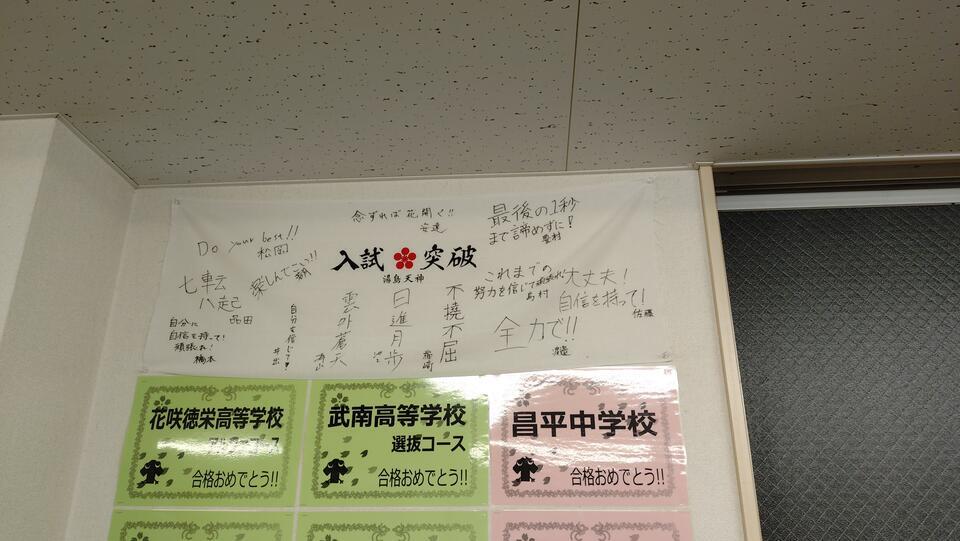 念ずれば花開く!!
安達
最後の1秒
まで諦めずに!
Do your best!!
松岡
入試 突破
湯島天神
楽しんでこい!!
七転
八起
品田
これまでの
努力を信じて
島村
大丈夫!
自信を持って!
佐藤
不撓不屈
日進月歩
雲外蒼天
自分を信じて!
井出
全力で!!
自分に
自信を持って!
頑張れ!
橋本
花咲徳栄高等学校
合格おめでとう!!
武南高等学校
選抜コース
合格おめでとう!!
昌平中学校
合格おめでとう!!